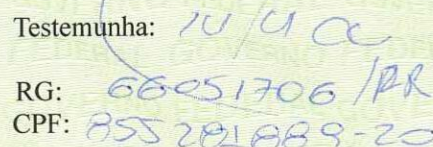 Testemunha:
RG: 66051706/PR
CPF: 855281889-20